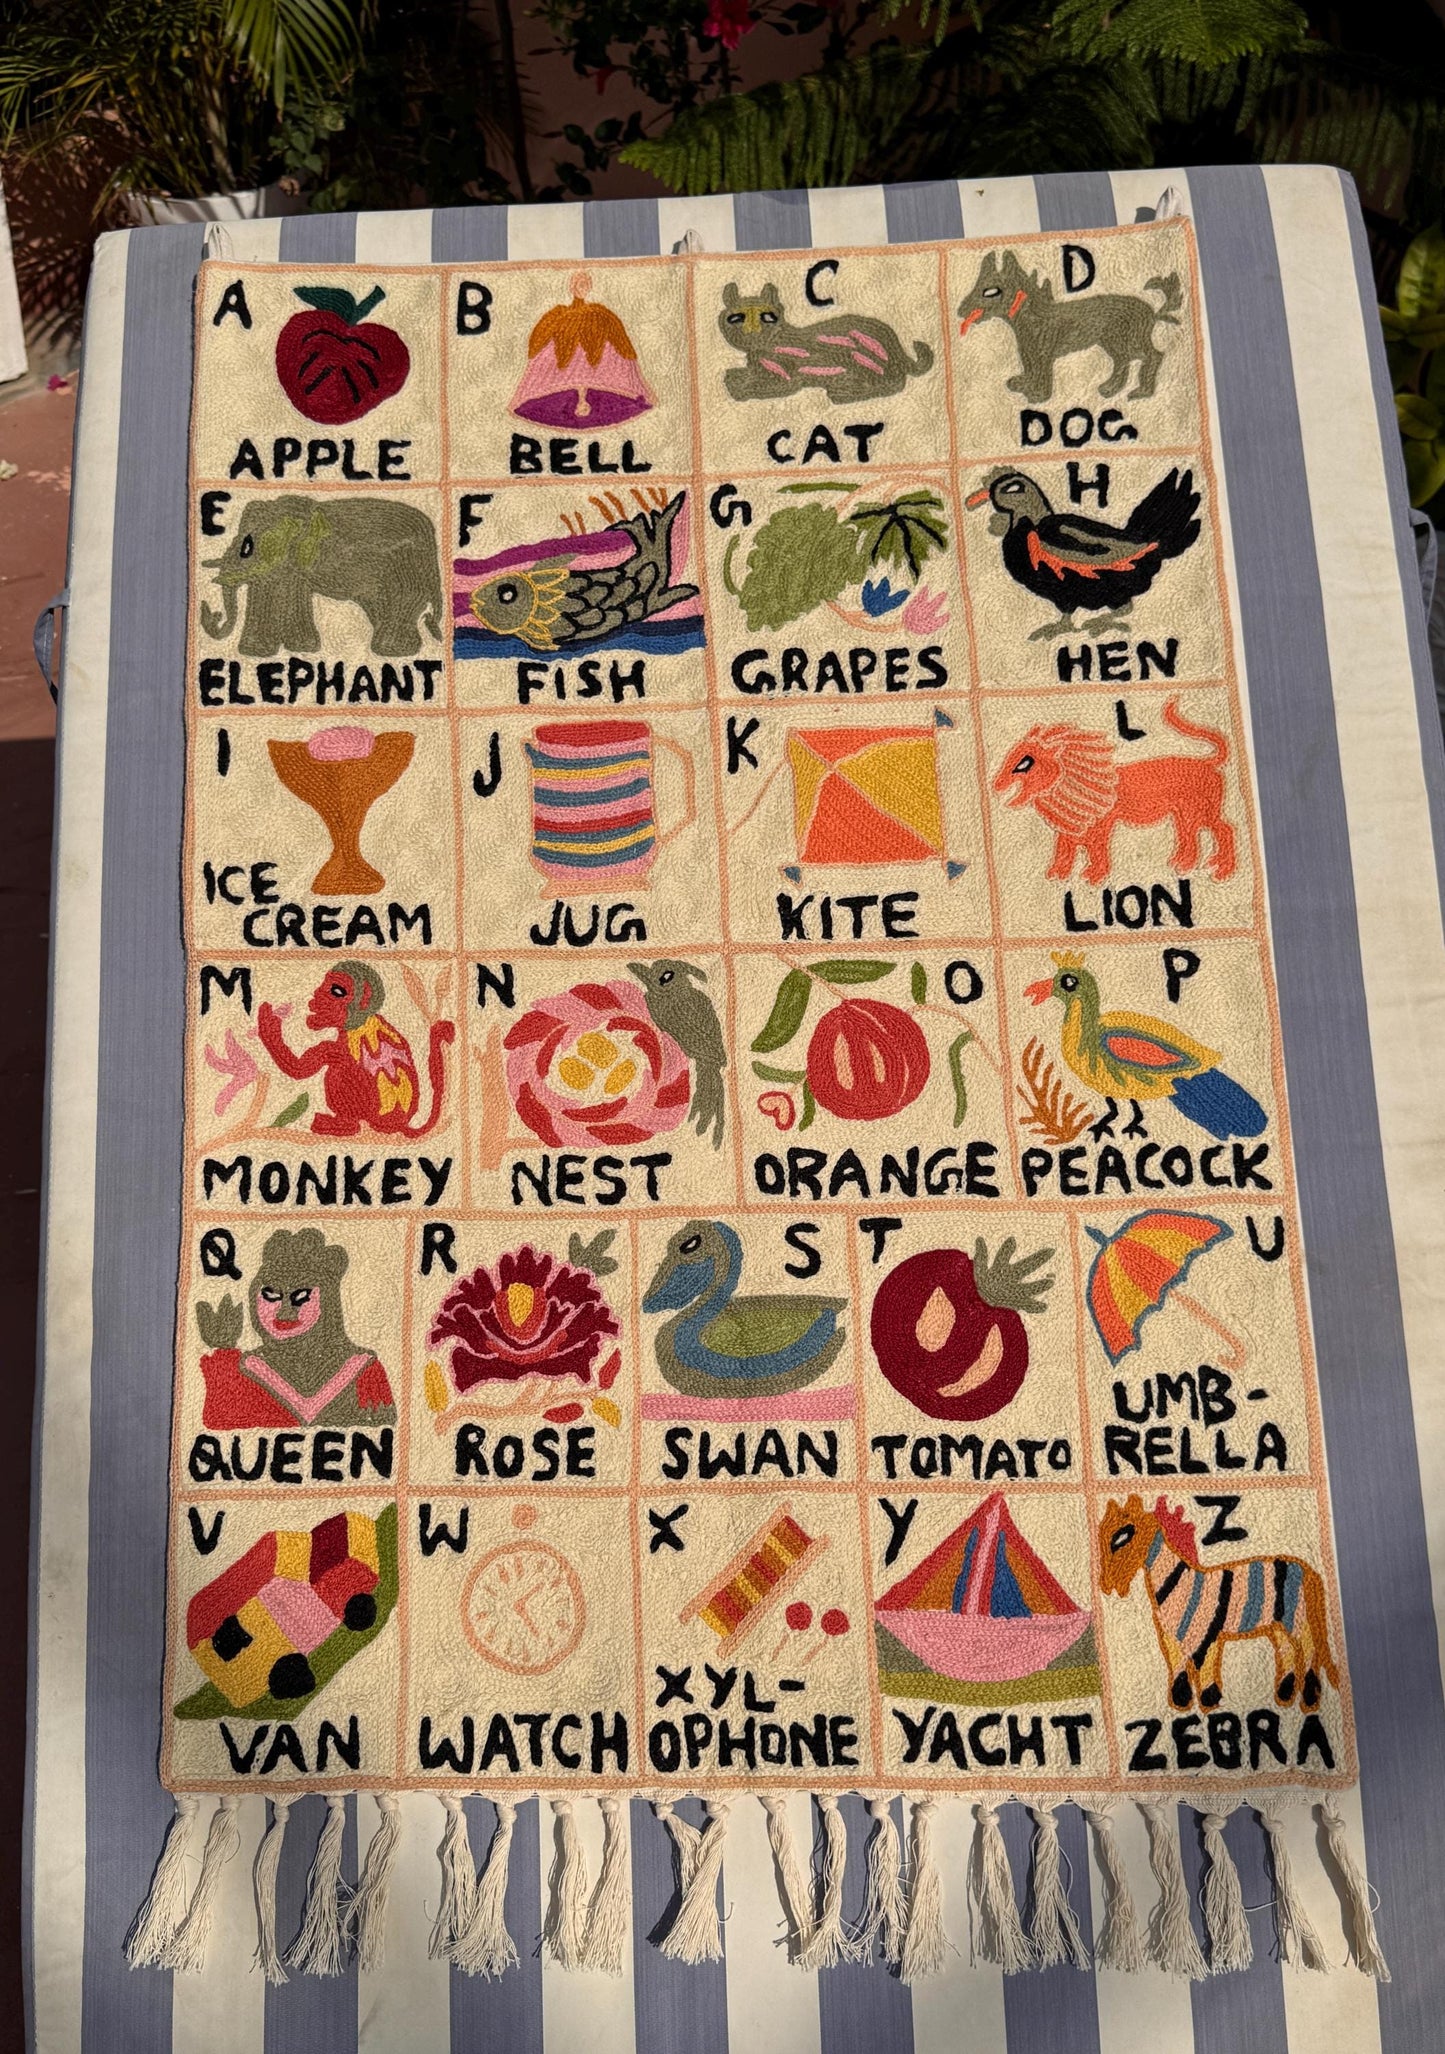 A
APPLE
B
BELL
C
CAT
D
DOG
E
ELEPHANT
F
FISH
G
GRAPES
H
HEN
I
ICE
CREAM
J
JUG
K
KITE
L
LION
M
MONKEY
N
NEST
O
ORANGE
P
PEACOCK
Q
QUEEN
R
ROSE
S
SWAN
T
TOMATO
U
UMB-
RELLA
V
VAN
W
WATCH
X
XYL-
OPHONE
Y
YACHT
Z
ZEBRA